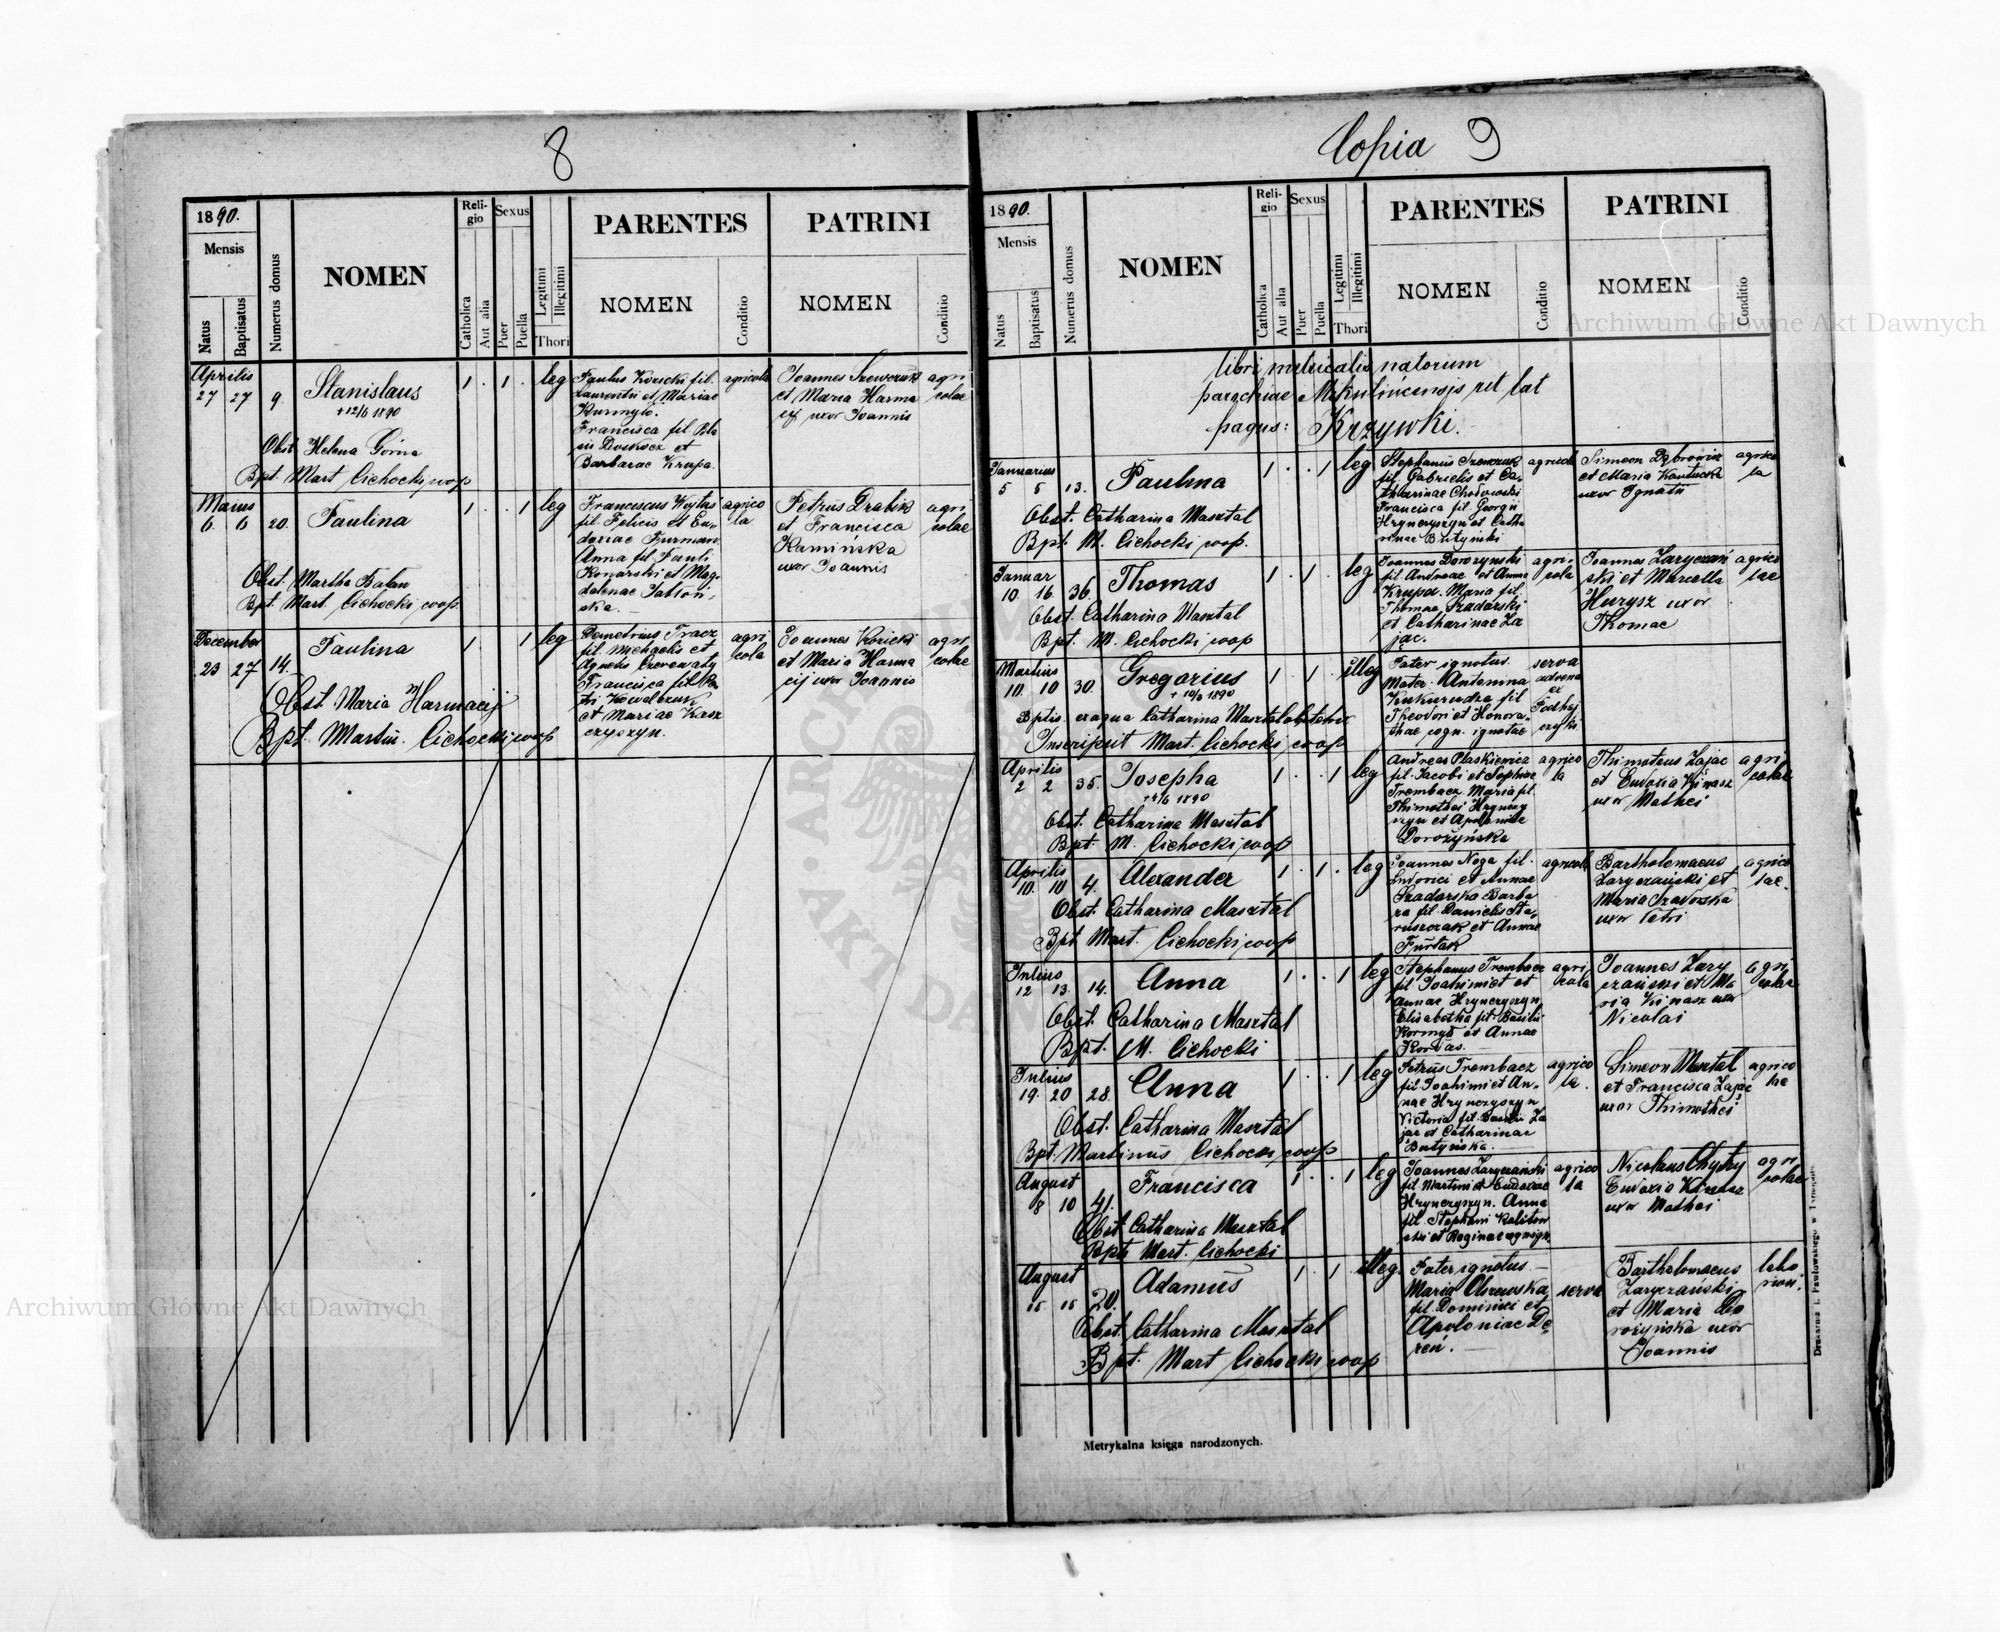 8
1890.
Mensis
Natus
Baptisatus
Numerus domus
NOMEN
Religio
Catholica
Aut alia
Sexus
Puer
Puella
Legitimi
Illegitimi
Thori
PARENTES
NOMEN
Conditio
PATRINI
NOMEN
Conditio
Aprilis
27 27 9. Stanislaus 1 . 1 . leg
+ 12/6 1890
Obst. Helena Górna
Bpt. Mart Cichocki, coop
Paulus Kozicki fil.
Laurentii et Mariae
Kurmyło.
Francisca fil. Bla
sii Doskocz et
Barbarae Krupa.
agricola
Joannes Szewczuk
et Maria Harma
cij uxor Joannis
agri
colae
Maius
6. 6 20. Paulina 1 . . 1 leg
Obst. Martha Bałan
Bpt. Mart. Cichocki, coop.
Franciscus Wojtas
fil. Felicis et Eu-
doxiae Furman.
Anna fil. Pauli
Konarski et Mag-
dalenae Jabłoń-
ska.
agrico
la
Petrus Drabik
et Francisca
Kamińska
uxor Joannis
agri
colae
December
23 27 14. Paulina 1 1 leg
Obst. Maria Harmacij
Bpt. Martin. Cichocki, coop
Demetrius Tracz
fil. Michaelis et
Agnetis Czerewaty
Francisca fil. Pe-
tri Kowalczuk
et Mariae Kasz
czyszyn.
agri
cola
Joannes Kozicki
et Maria Harma
cij uxor Joannis
agri
colae
Copia 9
1890.
Mensis
Natus
Baptisatus
Numerus domus
NOMEN
Religio
Catholica
Aut alia
Sexus
Puer
Puella
Legitimi
Illegitimi
Thori
PARENTES
NOMEN
Conditio
PATRINI
NOMEN
Conditio
libri metricalis natorum
parochiae Mikulincensis rit. lat
pagus: Krzywki.
Januarius
5 5 13. Paulina 1 . . 1 leg
Obst. Catharina Masztal
Bpt. M. Cichocki coop.
Stephanus Szewczuk
fil. Gabrielis et Ca-
tharinae Chodowski
Francisca fil. Georgii
Hrynczyszyn et Catha
rinae Butyński
agricola
Simeon Dąbrowicz
et Maria
uxor Ignatii
agrico
la
Januar
10. 16. 36. Thomas 1 . 1 . leg
Obst. Catharina Masztal
Bpt. M. Cichocki coop
Joannes Dorozynski
fil. Andreae et Annae
Krupa. Maria fil.
Thomae Szadarski
et Catharinae Za
jąc.
agri-
cola
Joannes Zaryczań
ski et Marcella
Hurysz uxor
Thomae
agrico
lae
Martius
10. 10 30. Gregorius 1 . 1 . illeg
+ 10/3 1890
Bptis. ex aqua Catharina Masztal obstetrix
Inscripsit Mart. Cichocki, coop
Pater ignotus.
Mater: Antonina
Kukurudza fil
Theodori et Honora-
thae cogn. ignotae
serva
advena
ex
Podhaj
czyki.
Aprilis
2 2 35. Josepha 1 . . 1 leg
+ 4/6 1890
Obst. Catharina Masztal
Bpt. M. Cichocki, coop
Andreas Płaskiewicz
fil. Jacobi et Sophiae
Trembacz. Maria fil.
Thimothei Hrynczy
szyn et Apoloniae
Dorożyńska
agrico
la
Thimoteus Zając
et Eudoxia Kinasz
uxor Mathei
agri
colae
Aprilis
10. 10 4. Alexander 1 . 1 . leg
Obst. Catharina Masztal
Bpt. Mart. Cichocki, coop
Joannes Noga fil.
Ludovici et Annae
Szadarska Barba
ra fil. Danielis Sta-
ruszczak et Annae
Furtak
agricola
Bartholomaeus
Zaryczański et
Maria
uxor Petri
agrico
lae.
Julius
12 13. 14. Anna 1 . . 1 leg
Obst. Catharina Masztal
Bpt. M. Cichocki
Stephanus Trembacz
fil. Joachimi et
Annae Hrynczyszyn
Elisabetha fil. Basilii
Kormyś et Annae
Kordas.
agri
cola
Joannes Zary
czański et Ma
ria Kinasz uxor
Nicolai
agri
colae
Julius
19. 20 28. Anna 1 . . 1 leg
Obst. Catharina Masztal
Bpt. Martinus Cichocki, coop
Petrus Trembacz
fil. Joachimi et An-
nae Hrynczyszyn
Victoria fil. Basilii Za
jąc et Catharinae
Butyńska.
agrico
la.
Simeon Masztal
et Francisca Zając
uxor Thimothei
agrico
lae
August
8 10 41. Francisca 1 . . 1 leg
Obst. Catharina Masztal
Bpt. Mart. Cichocki
Joannes Zaryczański
fil. Martini et Eudoxiae
Hrynczyszyn. Anna
fil. Stephani Kaliton
ski et Reginae
agrico
la
Nicolaus Chytry
Eudoxia Kinasz
uxor Mathei
agri
colae
August
15 15 20. Adamus 1 . 1 . illeg.
Obst. Catharina Masztal
Bpt. Mart Cichocki, coop
Pater ignotus.
Maria Olszewska,
fil. Dominici et
Apoloniae De
ren.
serva
Bartholomaeus
Zaryczański
et Maria Do
rożyńska uxor
Joannis
labo
riosi.
Metrykalna księga narodzonych.
Drukarnia i. Pawłowskiego w Tarnopolu
Archiwum Główne Akt Dawnych
Archiwum Główne Akt Dawnych